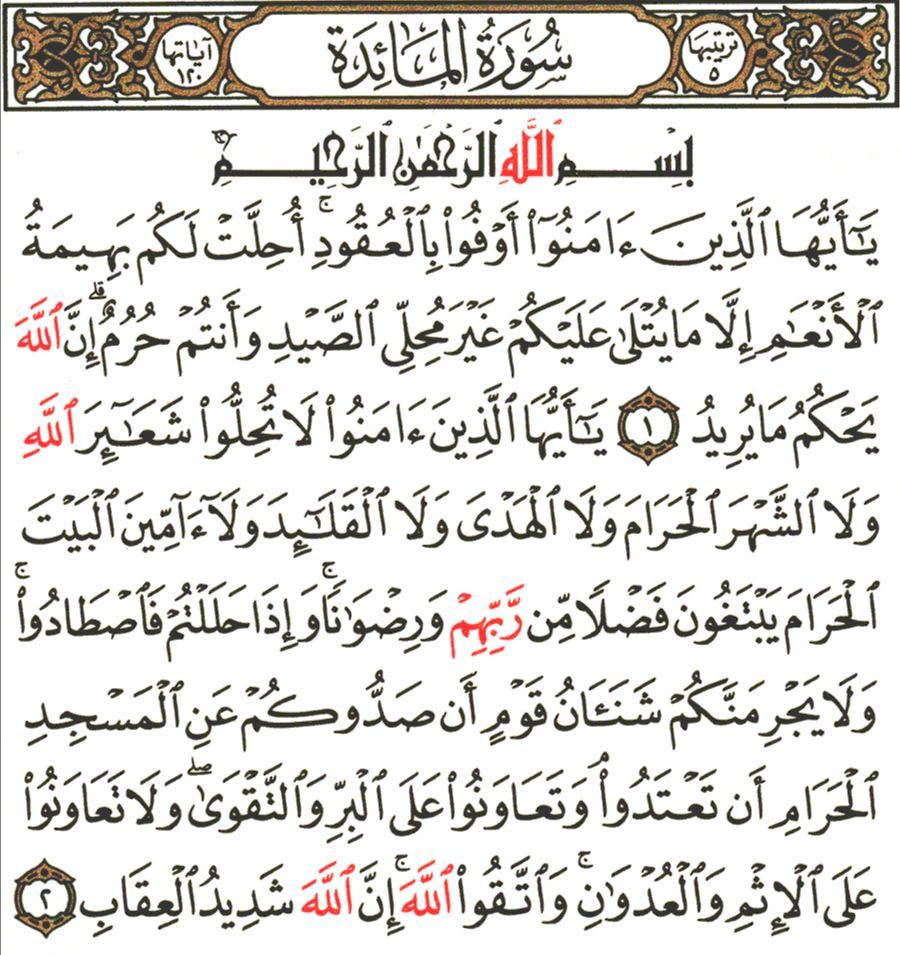 ترتيبها ٥ سُورَةُ المَائِدَة آياتها ١٢٠
بِسْمِ ٱللَّهِ ٱلرَّحْمَٰنِ ٱلرَّحِيمِ
يَٰٓأَيُّهَا ٱلَّذِينَ ءَامَنُوٓا۟ أَوْفُوا۟ بِٱلْعُقُودِ ۚ أُحِلَّتْ لَكُم بَهِيمَةُ
ٱلْأَنْعَٰمِ إِلَّا مَا يُتْلَىٰ عَلَيْكُمْ غَيْرَ مُحِلِّى ٱلصَّيْدِ وَأَنتُمْ حُرُمٌ ۗ إِنَّ ٱللَّهَ
يَحْكُمُ مَا يُرِيدُ ١ يَٰٓأَيُّهَا ٱلَّذِينَ ءَامَنُوا۟ لَا تُحِلُّوا۟ شَعَٰٓئِرَ ٱللَّهِ
وَلَا ٱلشَّهْرَ ٱلْحَرَامَ وَلَا ٱلْهَدْىَ وَلَا ٱلْقَلَٰٓئِدَ وَلَآ ءَآمِّينَ ٱلْبَيْتَ
ٱلْحَرَامَ يَبْتَغُونَ فَضْلًا مِّن رَّبِّهِمْ وَرِضْوَٰنًا ۚ وَإِذَا حَلَلْتُمْ فَٱصْطَادُوا۟ ۚ
وَلَا يَجْرِمَنَّكُمْ شَنَـَٔانُ قَوْمٍ أَن صَدُّوكُمْ عَنِ ٱلْمَسْجِدِ
ٱلْحَرَامِ أَن تَعْتَدُوا۟ ۘ وَتَعَاوَنُوا۟ عَلَى ٱلْبِرِّ وَٱلتَّقْوَىٰ ۖ وَلَا تَعَاوَنُوا۟
عَلَى ٱلْإِثْمِ وَٱلْعُدْوَٰنِ ۚ وَٱتَّقُوا۟ ٱللَّهَ ۚ إِنَّ ٱللَّهَ شَدِيدُ ٱلْعِقَابِ ٢